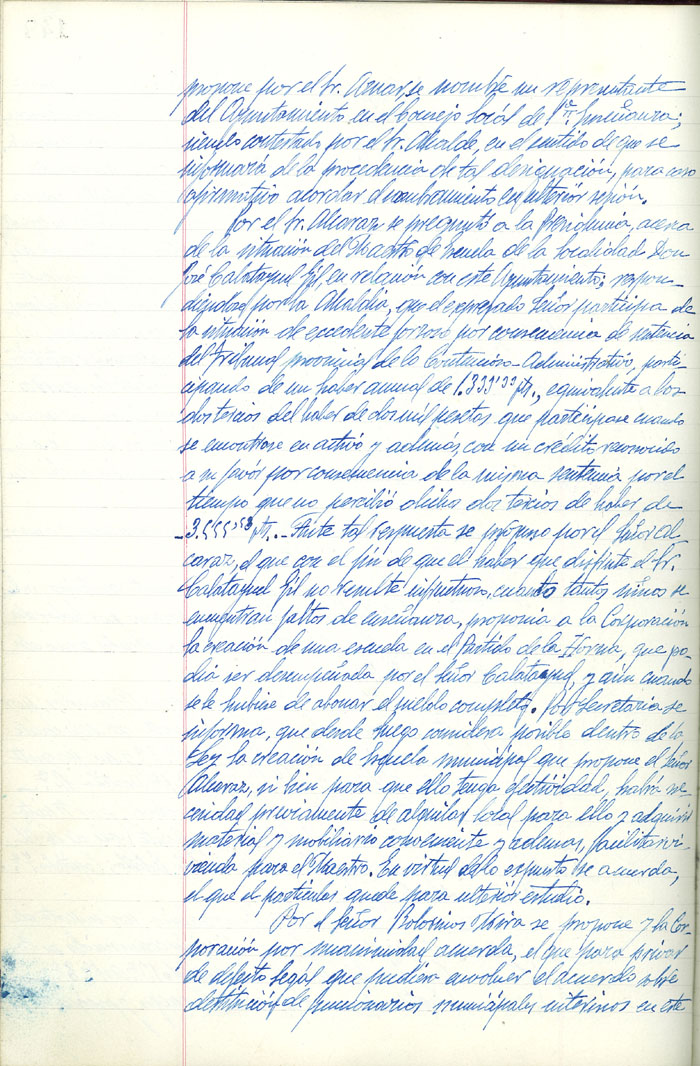 propone por el Sr. Aznar, se nombre un representante
del Ayuntamiento en el Consejo Local de 1ª Enseñanza;
siendo contestado por el Sr. Alcalde, en el sentido de que se
informará de la procedencia de tal designación, para caso
afirmativo acordar el nombramiento en ulterior sesión.
Por el Sr. Alcaraz se preguntó a la Presidencia, acerca
de la situación del Maestro de Escuela de la localidad Don
José Calatayud Gil, en relación con este Ayuntamiento; respon-
diéndose por la Alcaldía, que el expresado Señor participa de
la situación de excedente forzoso por consecuencia de sentencia
del Tribunal provincial de lo Contencioso-Administrativo, parti-
cipando de un haber anual de 1.333'33 pts., equivalente a los
dos tercios del haber de dos mil pesetas que participase cuando
se encontrase en activo y además, con un crédito reconocido
a su favor por consecuencia de la misma sentencia por el
tiempo que no percibió dichos dos tercios de haber, de
-3.555'53 pts.- Ante tal respuesta se propuso por el Señor Al-
caraz, el que con el fin de que el haber que disfrute el Sr.
Calatayud Gil no resulte infructuoso, cuanto tantos niños se
encuentran faltos de enseñanza, proponía a la Corporación
la creación de una escuela en el Partido de la Horna, que po-
día ser desempeñada por el Señor Calatayud, y aún cuando
se le hubiese de abonar el sueldo completo. Por Secretaría se
informa, que desde luego considera posible dentro de la
Ley la creación de Escuela municipal que propone el Señor
Alcaraz, si bien para que ello tenga efectividad, habrá ne-
cesidad previamente de alquilar local para ello y adquirir
material y mobiliario consecuente y además, facilitar vi-
vienda para el Maestro. En virtud de lo expuesto se acuerda,
el que el particular quede para ulterior estudio.
Por el Señor Bolorinos se propone y la Cor-
poración por unanimidad acuerda, el que para privar
de defecto legal que pudiera envolver el acuerdo sobre
destitución de funcionarios municipales interinos en este